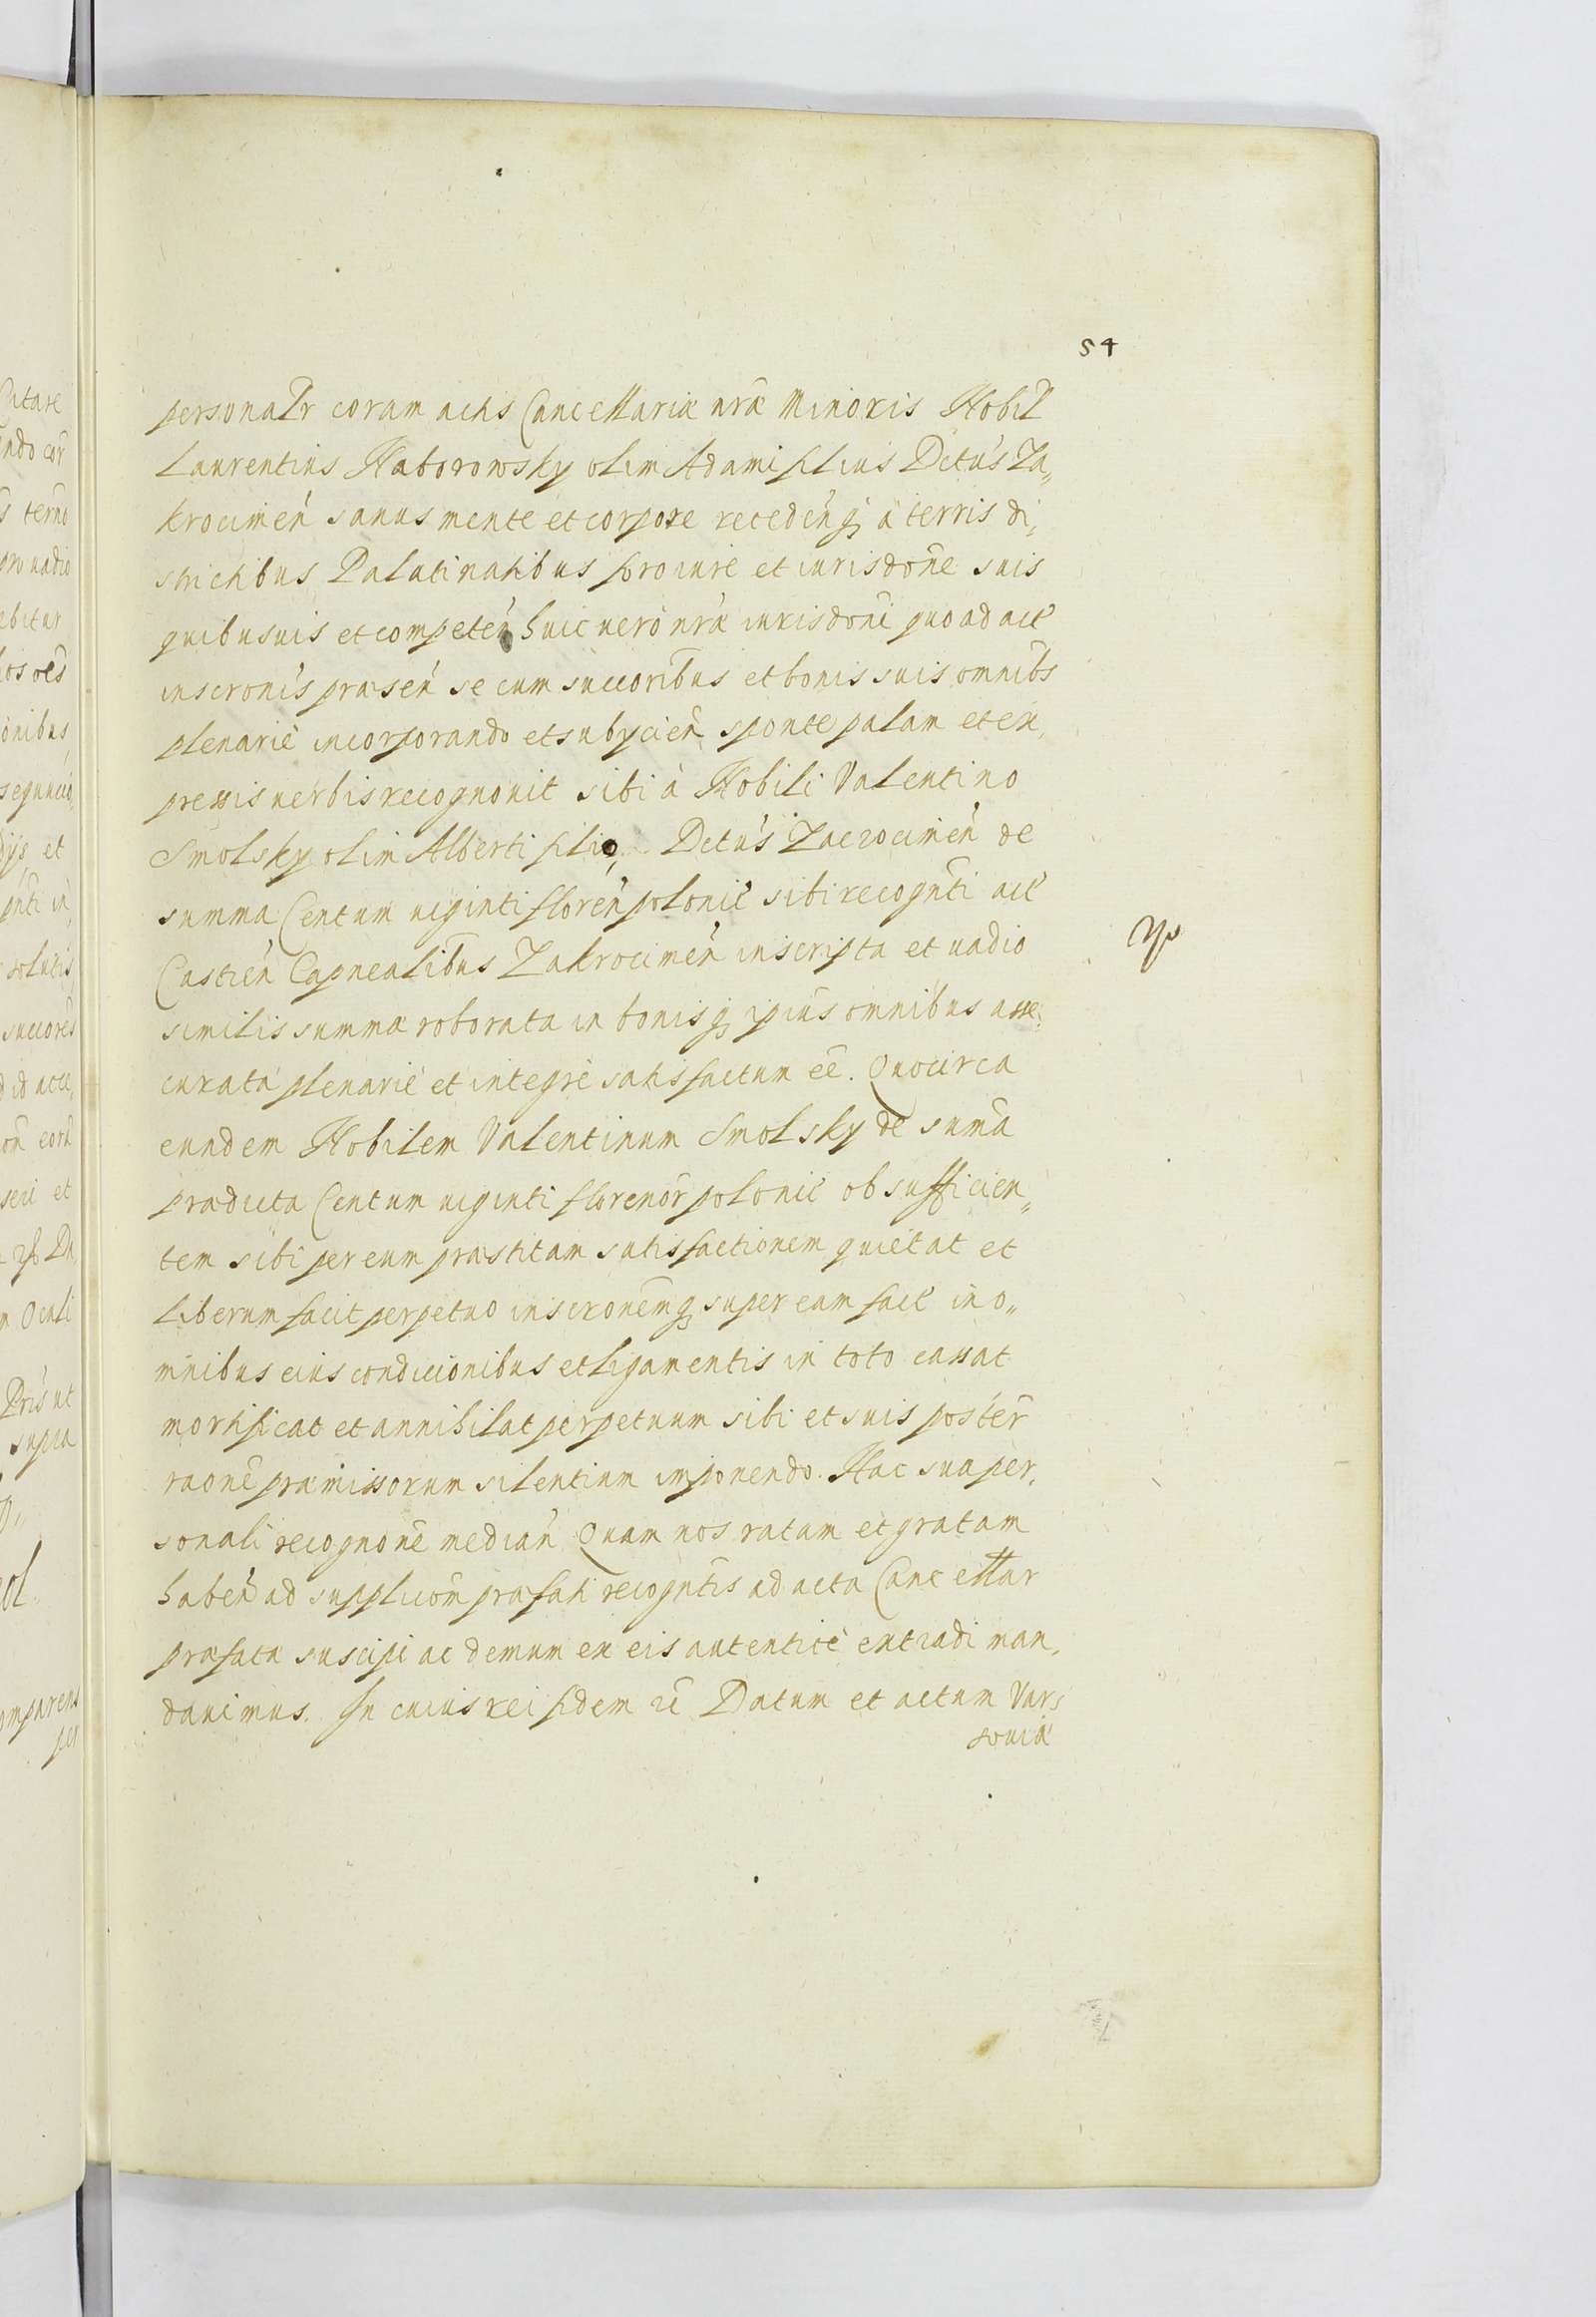 54
personalr coram actis Cancellariæ nræ Minoris Nobil
Laurentius Naborowsky olim Adami filius Dctus Za„
krocimen sanus mente et corpore recedenq; à terris di„
strictibus Palatinatibus foro iure et iurisdone suis
quibusuis et competen huic uerò nræ iurisdoni quo ad act
inscronis præsen se cum succoribus et bonis suis omnibs
plenariè incorporando et subycien sponte palam et ex„
pressis uerbis recognouit sibi à Nobili Valentino
Smolsky olim Alberti filio, Dctus Zacrocimen de
summa Centum uiginti floren polonic sibi recognti act
Castren Capnealibus Zakrocimen inscripta et uadio
similis summæ roborata in bonisq; ipius omnibus asse„
curata plenariè et integrè satisfactum eē. Quocirca
eundem Nobilem Valentinum Smolsky de suma
prædicta Centum uiginti florenor polonic ob sufficien„
tem sibi per eum præstitam satisfactionem quietat et
liberum facit perpetuo inscronemq; super eam fact in o„
mnibus eius condicionibus et ligamentis in toto cassat
mortificat et annihilat perpetuum sibi et suis poster
raone præmissorum silentium imponendo. Hac sua per„
sonali recognone median Quam nos ratam et gratam
haben ad supplicom præfati recogntis ad acta Cancellar
præfata suscipi ac demum ex eis autenticè extradi man„
dauimus. In cuius rei fidem rē Datum et actum Var„
souiæ